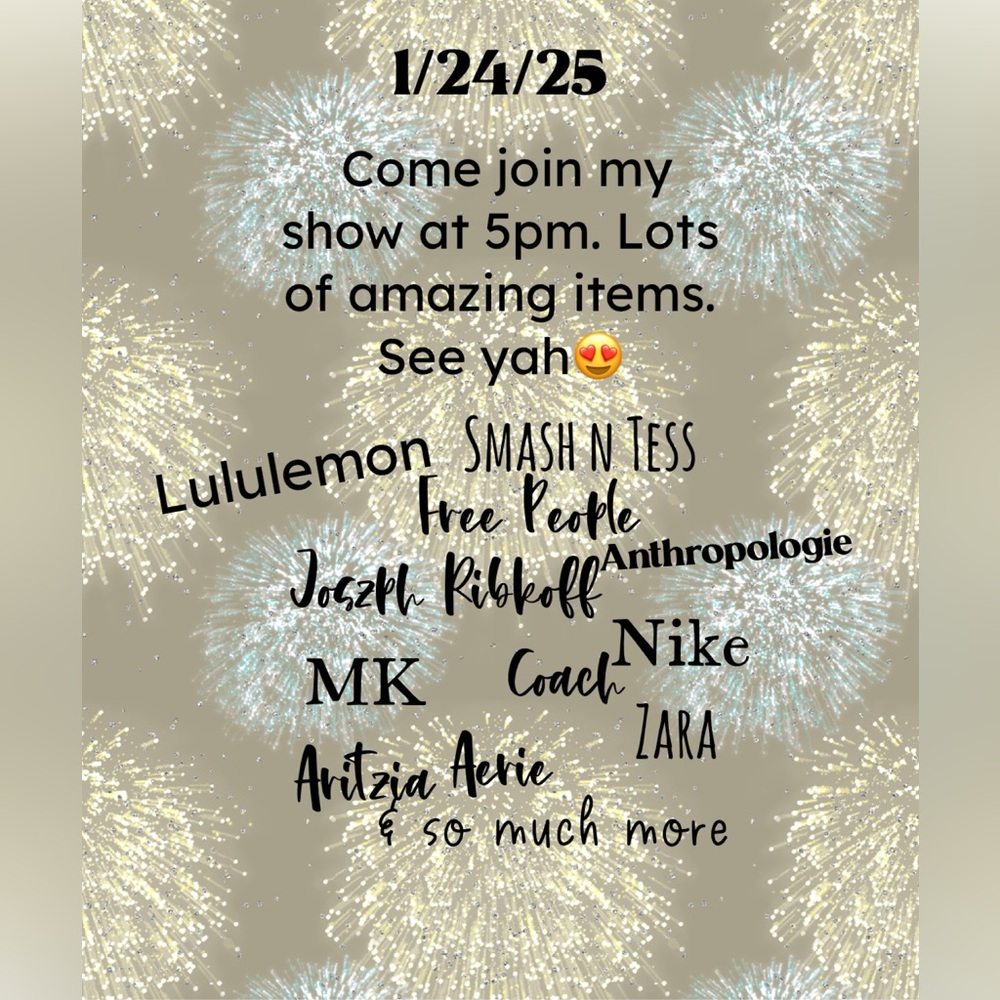 1/24/25
Come join my
show at 5pm. Lots
of amazing items.
See yah😍
Lululemon
Smash n Tess
Free People
Anthropologie
Joszph Ribkoff
Nike
MK
Coach
Zara
Aritzia
Aerie
& so much more